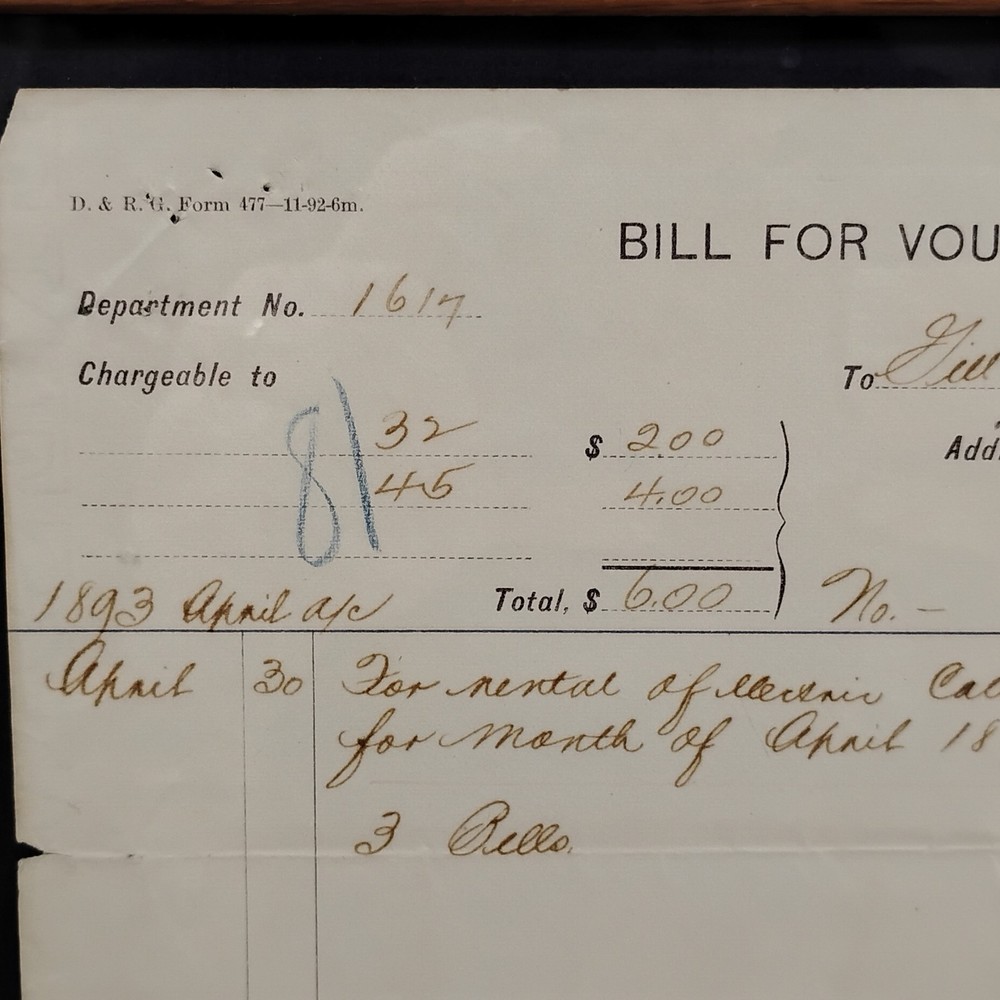 D. & R. G. Form 477—11-92-6m.
BILL FOR VOU
Department No. 1617
Chargeable to
To Gill
81
32 $ 2.00
Add
45 4.00
1893 April a/c Total, $ 6.00 No. –
April 30 For rental of Electric Cal
for month of April 18
3 Bells.